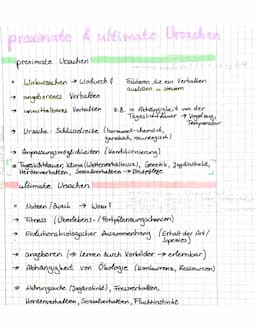 proximate & ultimate Ursachen
proximate Ursachen
• Wirkursachen → Wodurch? Faktoren die ein Verhalten
auslösen u. steuern
→ angeborenes Verhalten
→ unmittelbares Verhalten z.B. in Abhängigkeit von der
Tageslichtdauer → Vogelzug,
Temperatur
→ Ursache: Schlüsselreize (hormonell-chemisch,
genetisch, neurologisch)
→ Anpassungsmöglichkeiten (Konditionierung)
→ Tageslichtdauer, Klima (Wetterverhältnisse), Genetik, Jagdinstinkt,
Herdenverhalten, Sozialverhalten → Brutpflege
ultimate Ursachen
→ Nutzen / Zweck → Wozu?
→ Fitness (Überlebens- / Fortpflanzungschancen)
→ Evolutionsbiologischer Zusammenhang (Erhalt der Art /
Spezies)
→ angeboren (→ lernen durch Vorbilder → erlernbar)
→ Abhängigkeit von Ökologie (Konkurrenz, Ressourcen)
→ Nahrungssuche (Jagdinstinkt), Fressverhalten,
Herdenverhalten, Sozialverhalten, Fluchtinstinkt